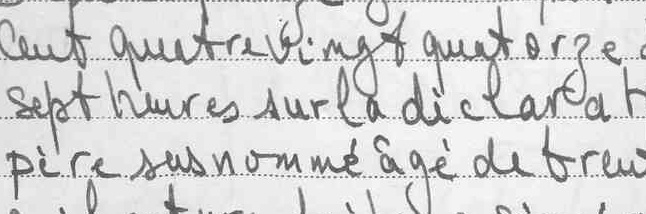 Cent quatre vingt quatorze à
sept heures sur la déclarat
père susnommé âgé de tren